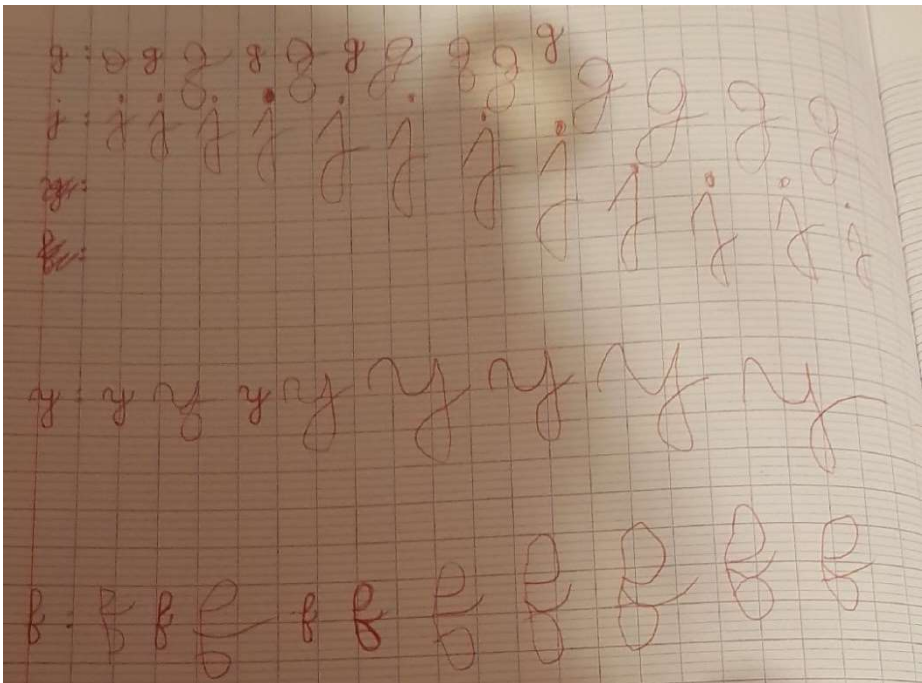 g: g g g g g g g g g g g g g g
j: j j j j j j j j j j j j
y: y y y y y y y y
f: f f f f f f f f f f